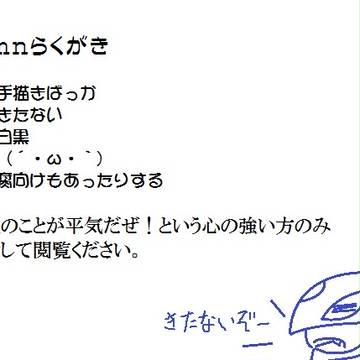 nnらくがき
手描きばっか
きたない
白黒
（´・ω・｀）
腐向けもあったりする
のことが平気だぜ！という心の強い方のみ
して閲覧ください。
きたないぞー